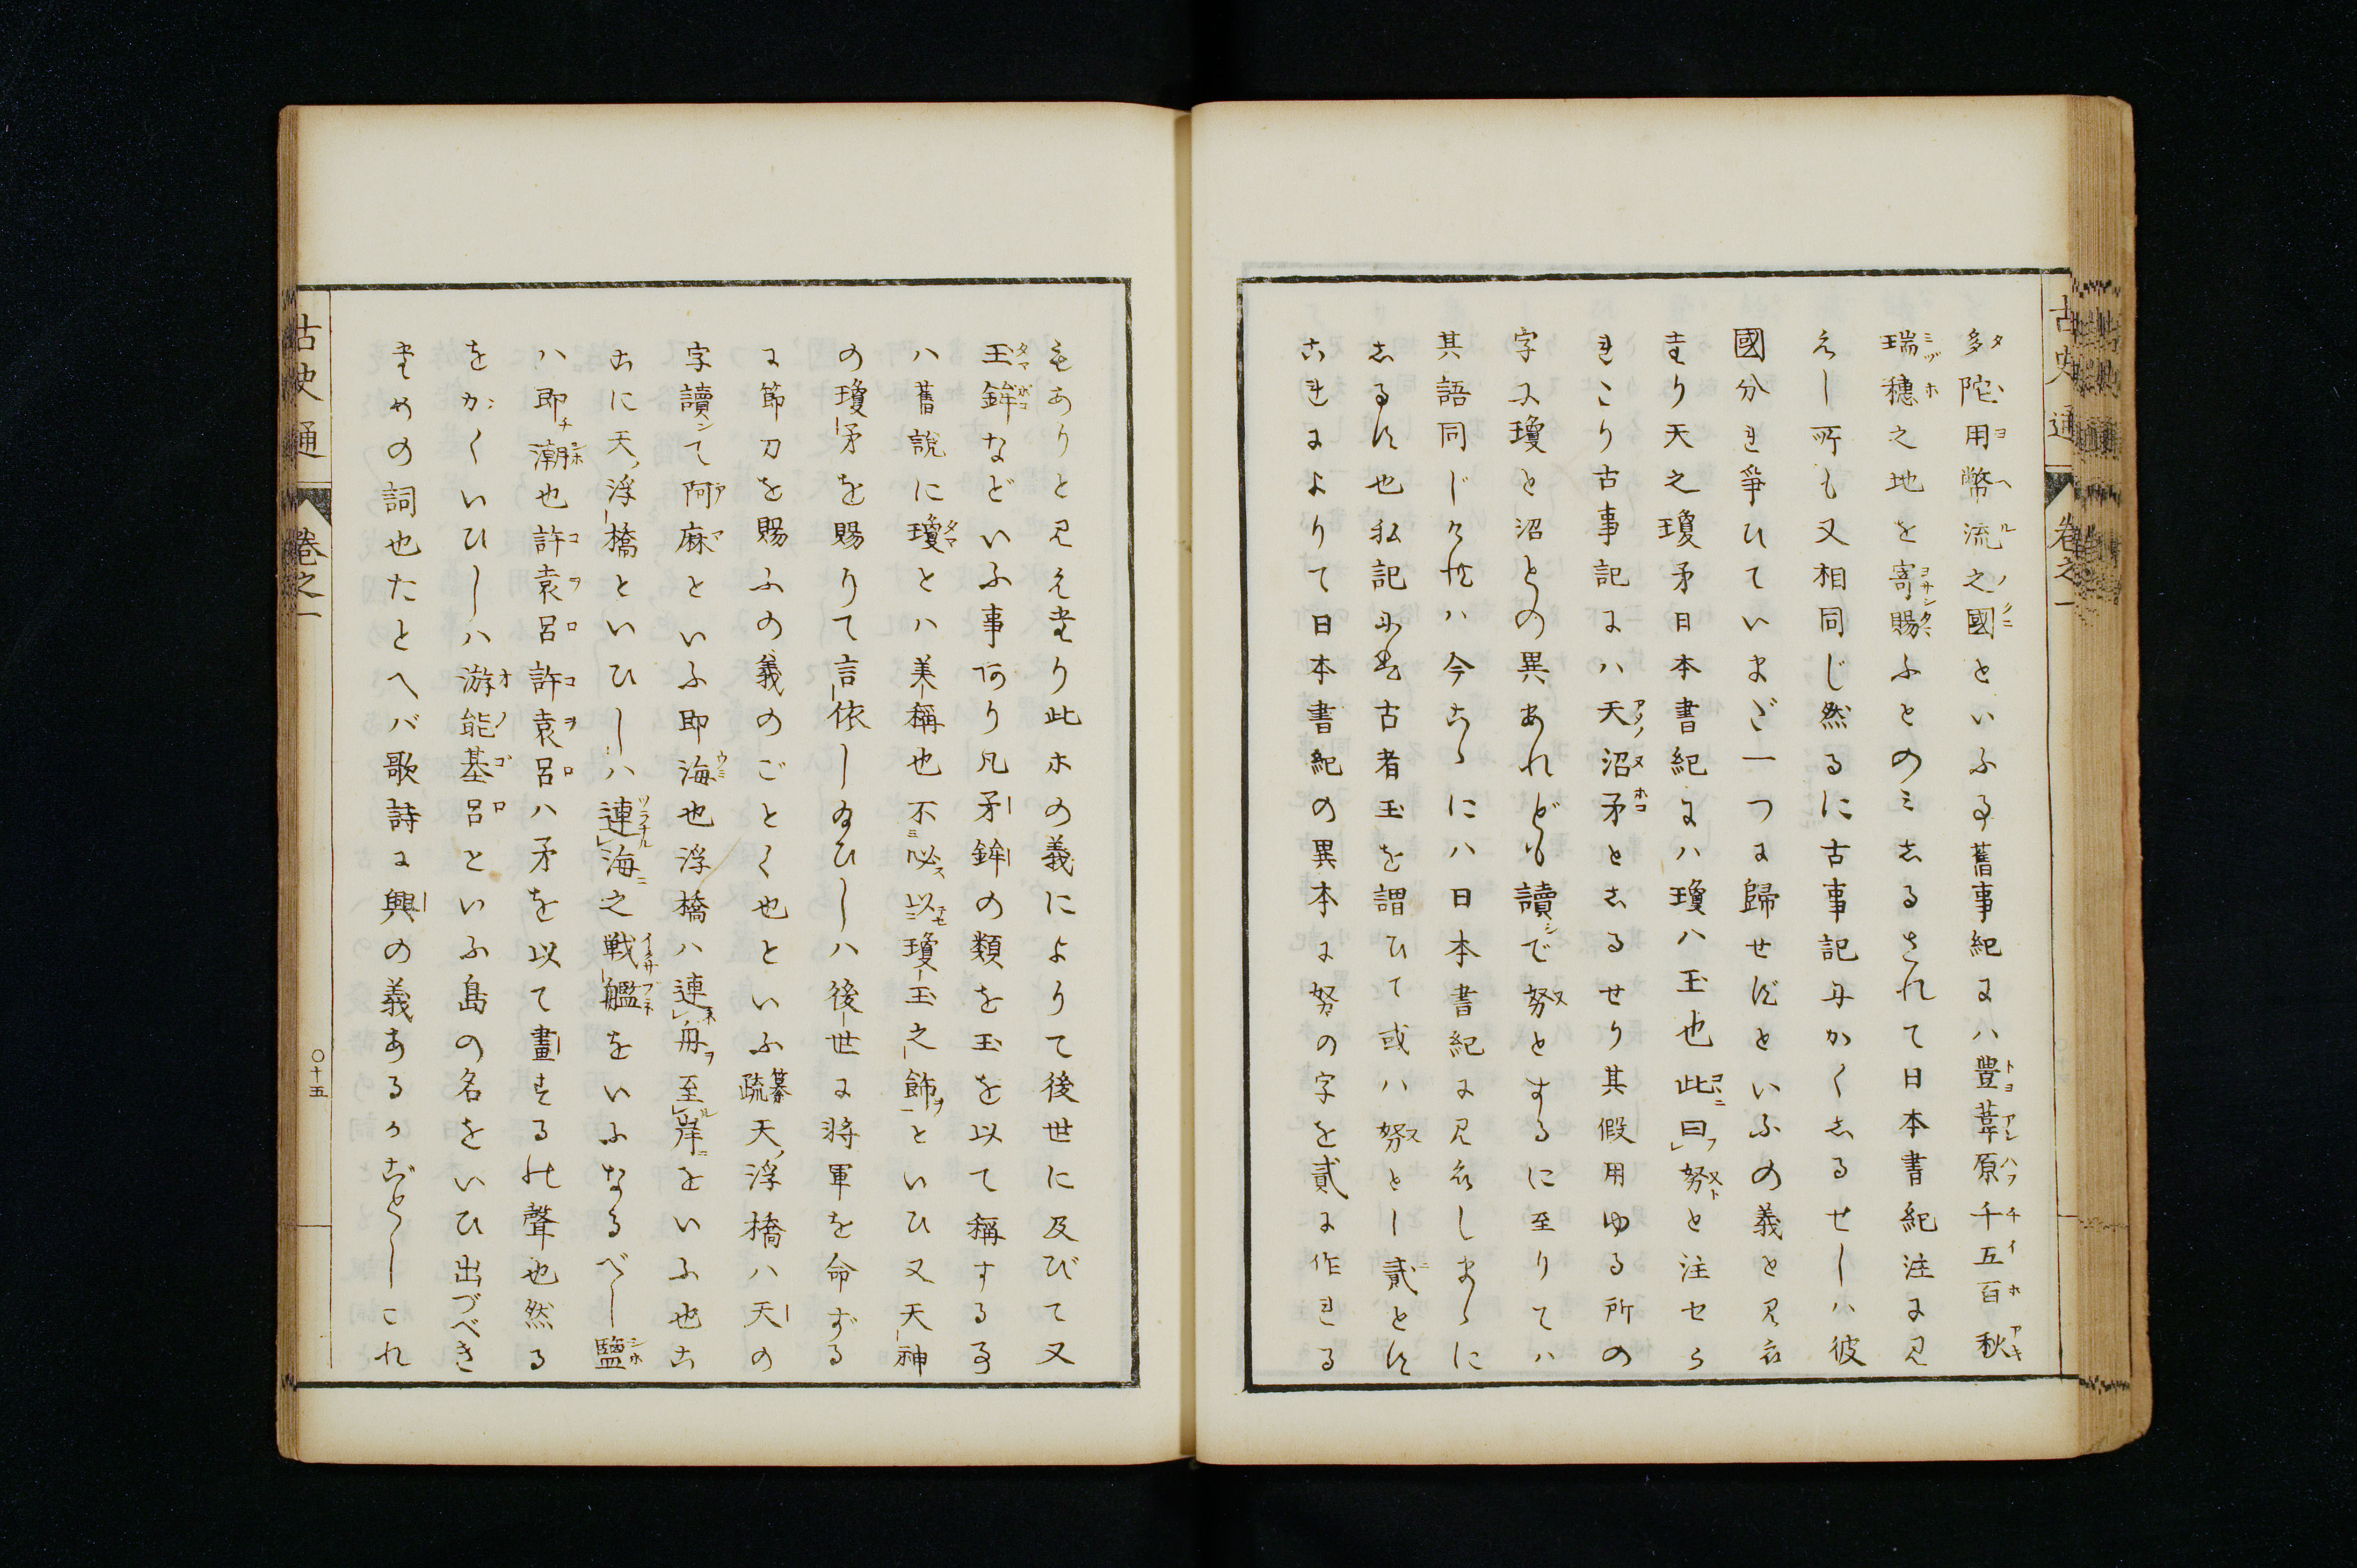 古史通 卷之一
多陀用幣流之國といふる舊事紀には豊葦原千五百秋
瑞穗之地を寄賜ふとのミしるされて日本書紀注に見
えし所も又相同じ然るに古事記にかくしるせしハ彼
國分れ爭ひていまだ一つに歸せずといふの義と見え
たり天之瓊矛日本書紀にハ瓊ハ玉也此曰努と注せら
れたり古事記にハ天沼矛としるせり其假用ゆる所の
字に瓊と沼との異あれども讀で努とするに至りてハ
其語同じければ今こゝにハ日本書紀に見えしまゝに
しるす也私記に古者玉を謂ひて或ハ努とし貳とす
これによりて日本書紀の異本に努の字を貳に作れる
もありと見えたり此ホの義によりて後世に及びて又
玉鉾などいふ事有り凡矛鉾の類を玉を以て稱する事
ハ舊說に瓊とハ美稱也不必以瓊玉之飾といひ又天神
の瓊矛を賜りて言依し給ひしハ後世に将軍を命ずる
に節刀を賜ふの義のごとく也といふ纂疏天浮橋ハ天の
字讀て阿麻といふ即海也浮橋ハ連舟至岸をいふ也こ
こに天浮橋といひしハ連海之戦艦をいふなるべし鹽
ハ即潮也許袁呂許袁呂ハ矛を以て畫するの聲也然る
をかくいひしハ游能基呂といふ島の名をいひ出づべき
ための詞也たとへバ歌詩に興の義あるがごとしこれ
古史通 卷之一 〇十五